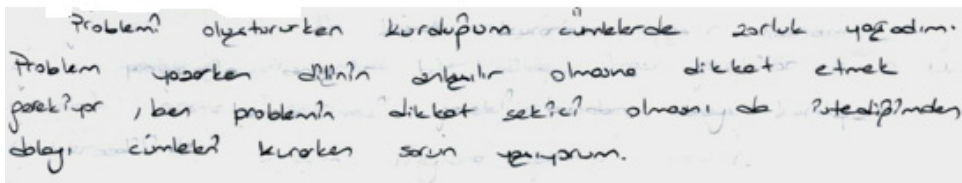 Problemi oluştururken kurduğum cümlelerde zorluk yaşadım.
Problem yazarken dilinin anlaşılır olmasına dikkat etmek
gerekiyor, ben problemin dikkat çekici olmasını da istediğimden
dolayı cümleleri kurarken sorun yaşıyorum.